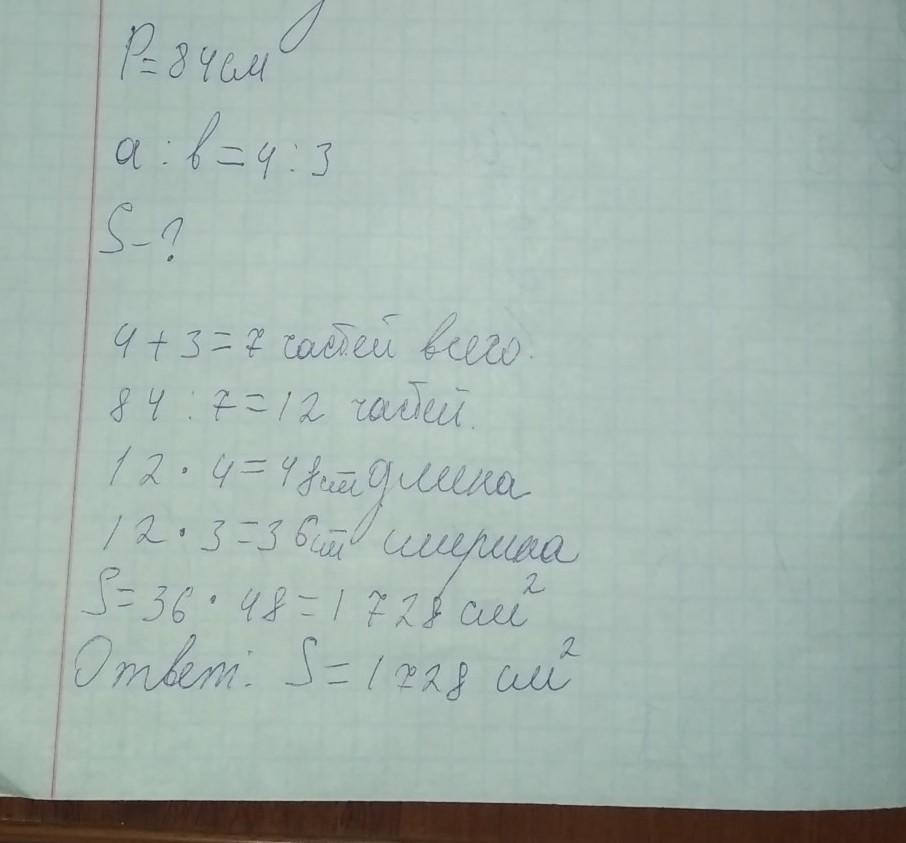 P=84см
а:в=4:3
S-?
4+3=7 частей всего.
84:7=12 частей.
12·4=48см длина
12·3=36см ширина
S=36·48=1728 см²
Ответ: S=1728 см²